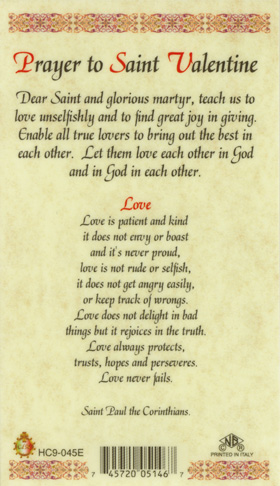 Prayer to Saint Valentine
Dear Saint and glorious martyr, teach us to
love unselfishly and to find great joy in giving.
Enable all true lovers to bring out the best in
each other. Let them love each other in God
and in God in each other.
Love
Love is patient and kind
it does not envy or boast
and it's never proud,
love is not rude or selfish,
it does not get angry easily,
or keep track of wrongs.
Love does not delight in bad
things but it rejoices in the truth.
Love always protects,
trusts, hopes and perseveres.
Love never fails.
Saint Paul the Corinthians.
HC9-045E
NB
PRINTED IN ITALY
7 45720 05146 7